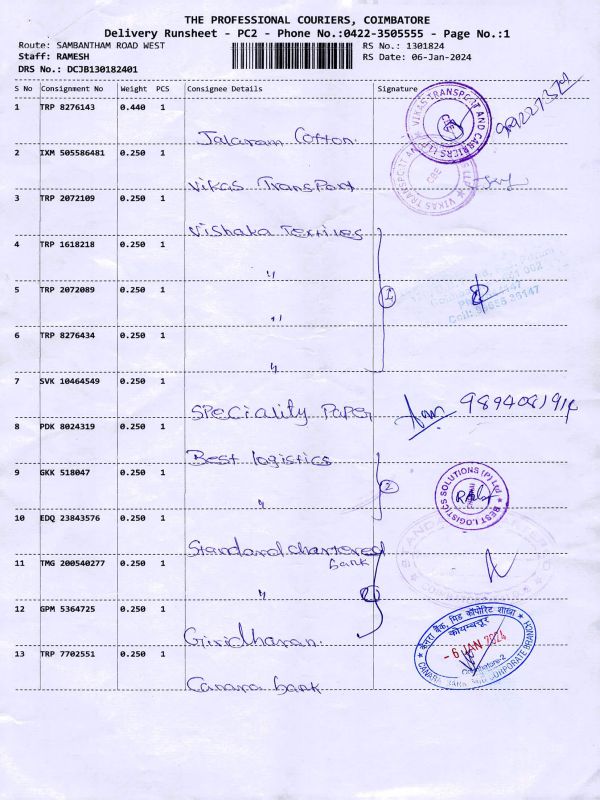 THE PROFESSIONAL COURIERS, COIMBATORE
Delivery Runsheet - PC2 - Phone No.:0422-3505555 - Page No.:1
Route: SAMBANTHAM ROAD WEST
Staff: RAMESH
DRS No.: DCJB130182401
RS No.: 1301824
RS Date: 06-Jan-2024
S No Consignment No Weight PCS Consignee Details Signature
1 TRP 8276143 0.440 1 Jalaram Cotton
2 IXM 505586481 0.250 1 Vikas Transport
3 TRP 2072109 0.250 1 Vishaka Textiles
4 TRP 1618218 0.250 1 "
5 TRP 2072089 0.250 1 "
6 TRP 8276434 0.250 1 "
7 SVK 10464549 0.250 1 Speciality Paper 9894081914
8 PDK 8024319 0.250 1 Best logistics
9 GKK 518047 0.250 1 " 2
10 EDQ 23843576 0.250 1 Standard chartered bank
11 TMG 200540277 0.250 1 "
12 GPM 5364725 0.250 1 Giridharan.
13 TRP 7702551 0.250 1 Canara bank
VIKAS TRANSPORT AND CARRIERS LLP
VIKAS TRANSPORT
CBE
BEST LOGISTICS SOLUTIONS (P) Ltd
केनरा बैंक, मिड कॉर्पोरेट शाखा
कोयम्बत्तूर
- 6 JAN 2024
Coimbatore-2
CANARA BANK MID CORPORATE BRANCH